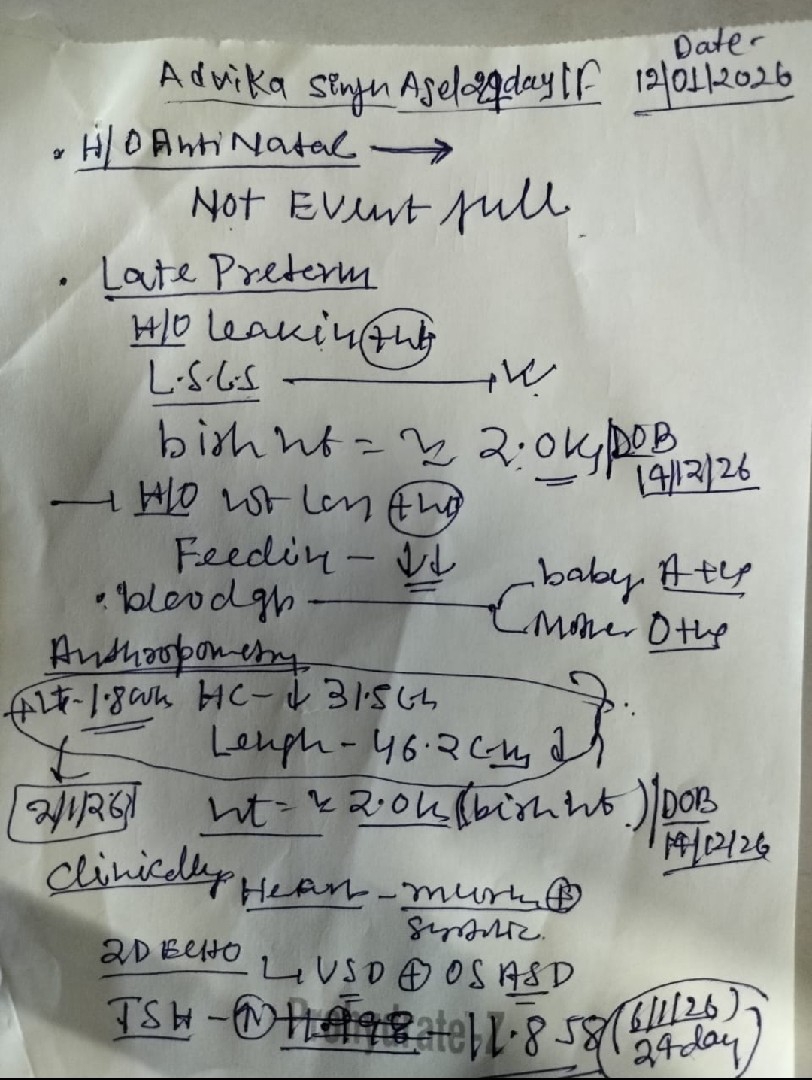 Date-
Advika Singh Age/29day/F 12/01/2026
• H/O Anti Natal →
Not Event full
• Late Preterm
H/O leakin +nt
L.S.C.S
birth wt = ~ 2.0kg/DOB
14/12/26
→ H/O wt loss +nt
Feedin - ↓↓
• blood gp baby A +ve
Mother O +ve
Anthropometry
wt-1.8 HC-↓ 31.5cm
Length - 46.2cm ↓
2/1/26 wt = ~ 2.0k (birth wt.)/DOB
14/12/26
Clinically Heart - murm ⊕
Systolic.
2D ECHO ↳ VSD ⊕ OS ASD
TSH - (N) 11.858 (6/1/26)
24day